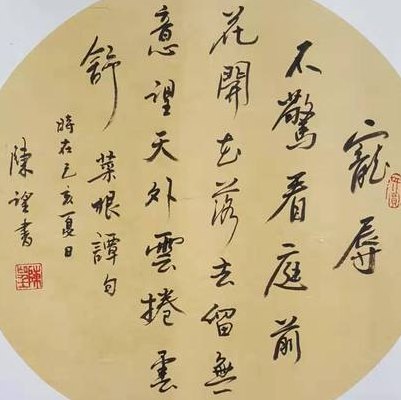 寵辱
不驚看庭前
花開花落去留無
意望天外雲捲雲
舒
菜根譚句
時在己亥夏日
陳書